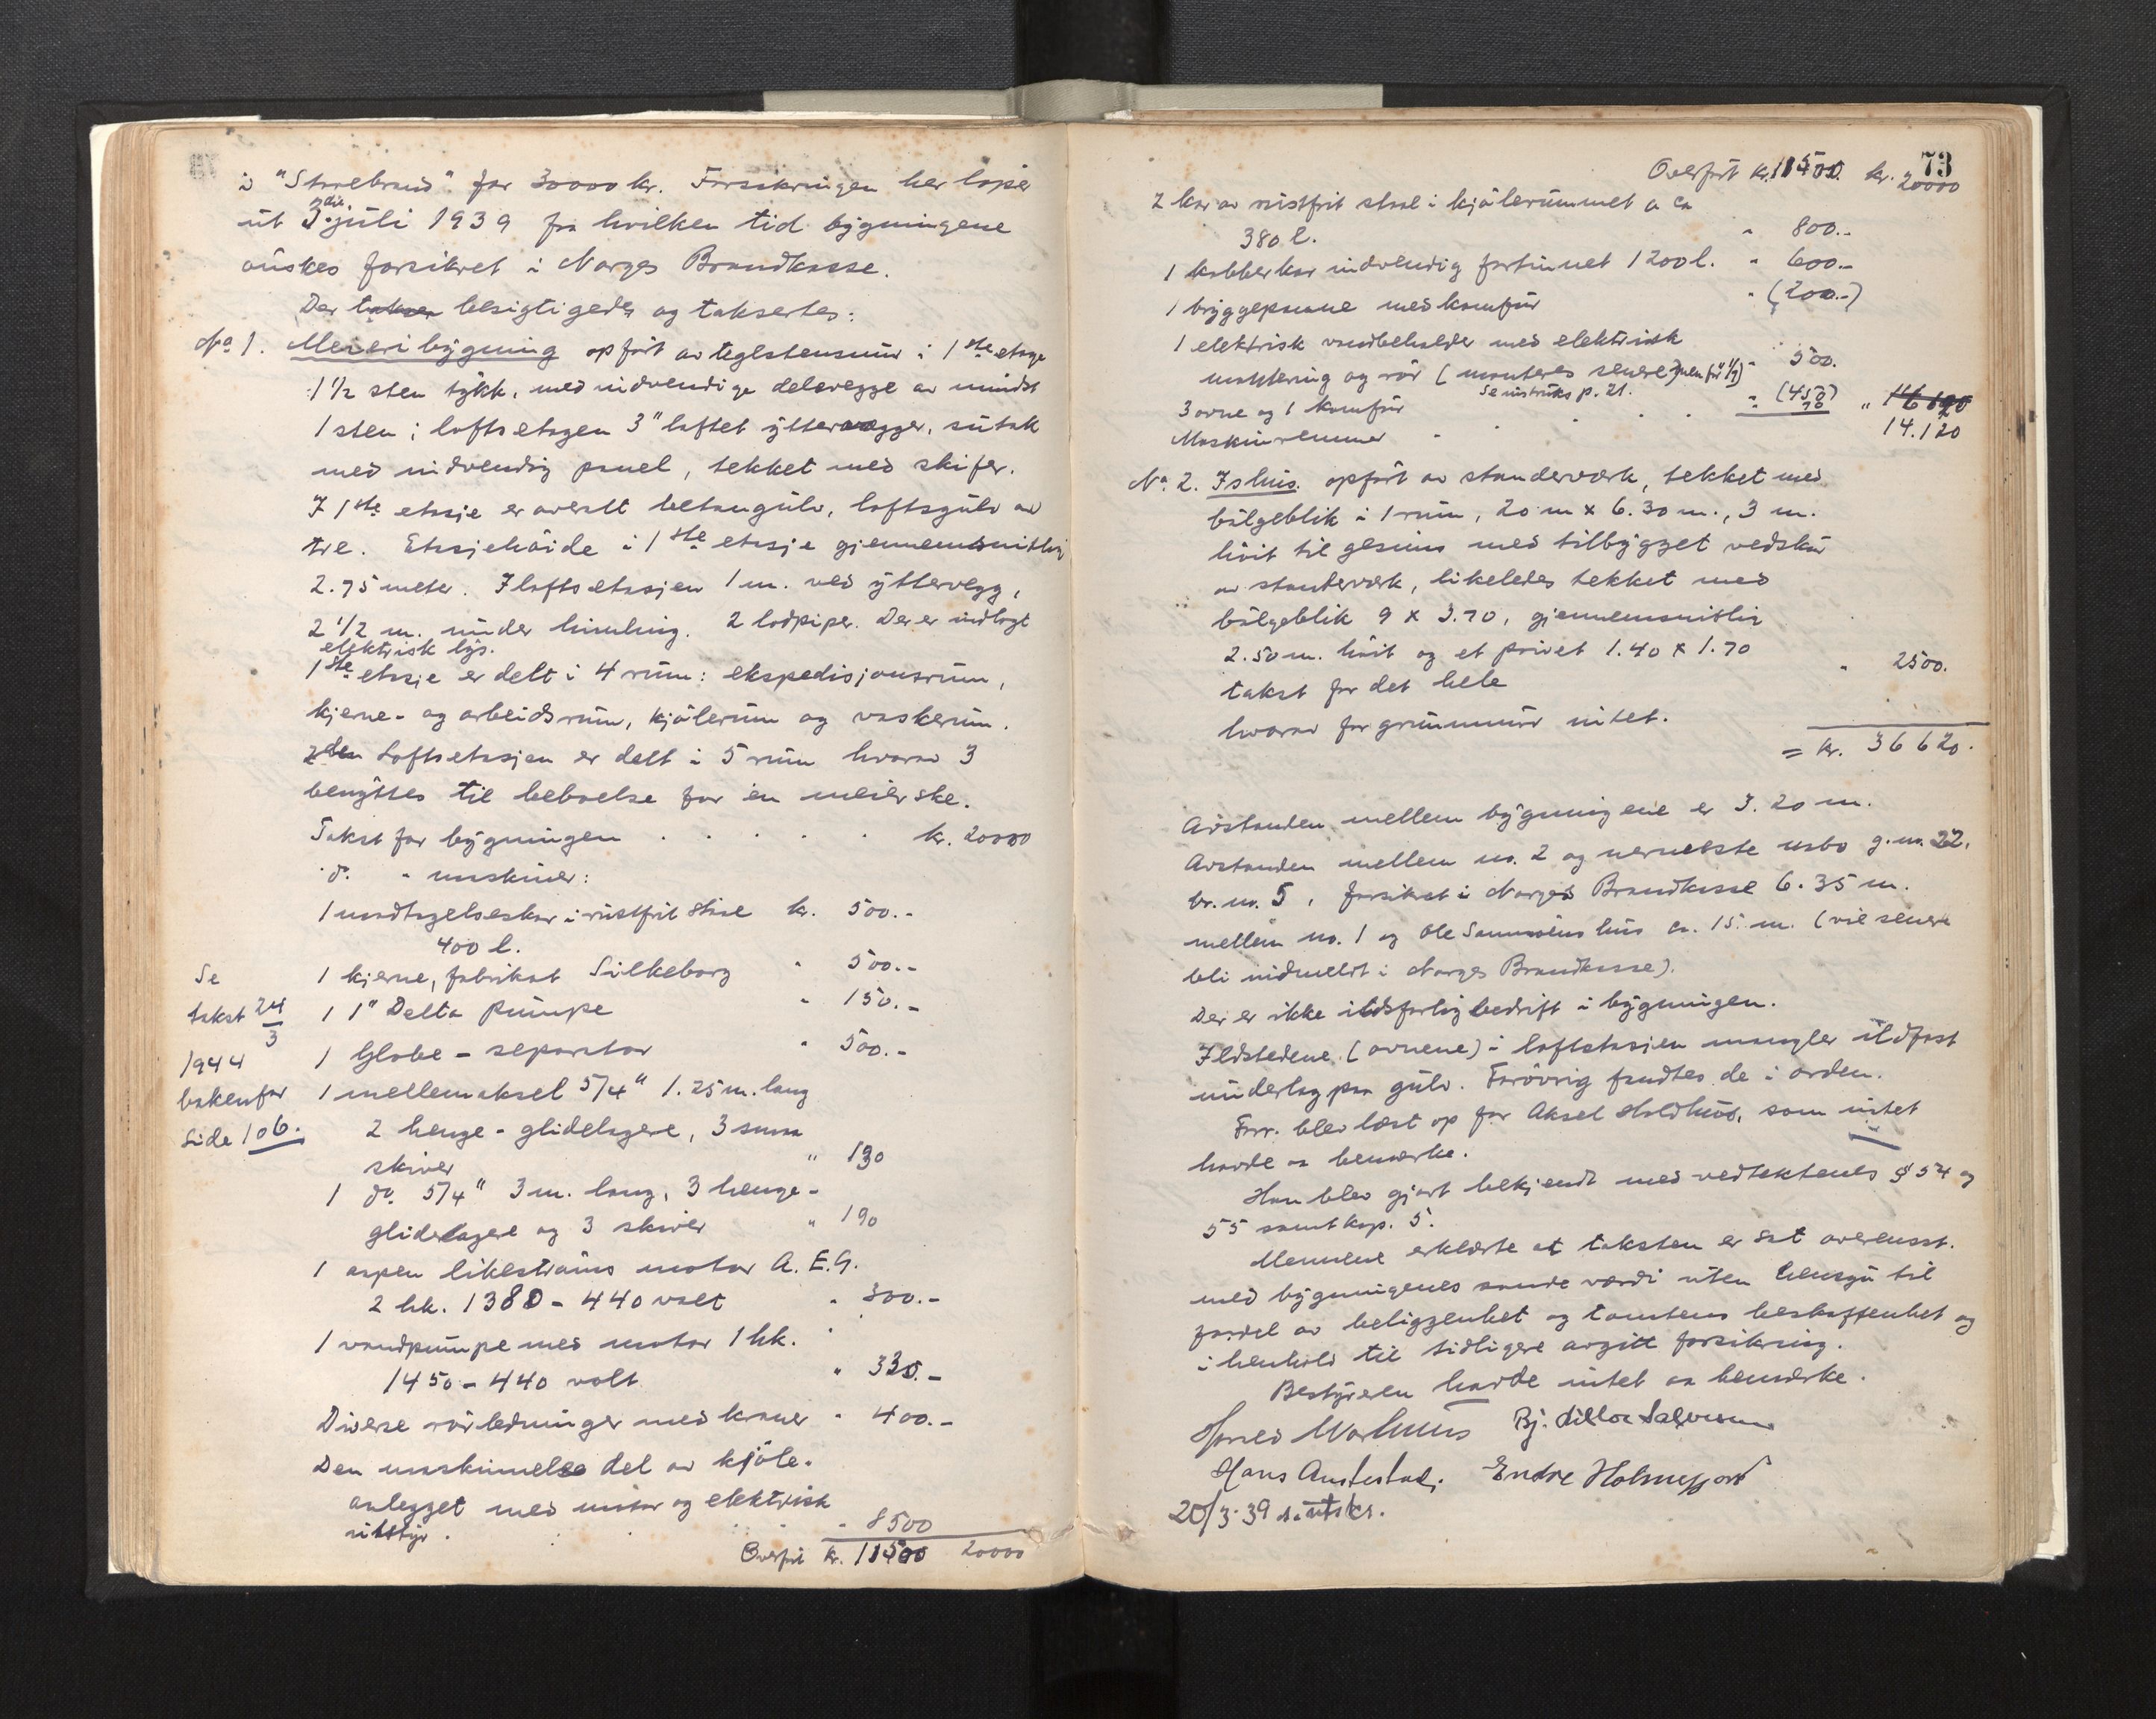 i "Storebrand" for 30000 kr. Forsikringen her löper
ut 3die juli 1939 fra hvilken tid bygningene
önskes forsikret i Norges Brandkasse.
Der takser besigtigedes og taksertes:
No 1. Meieribygning opfört av teglstensmur i 1ste etage
1 1/2 sten tykk, med indvendige delevegge av mindst
1 sten i loftsetagen 3" laftet yttervegger, sutak
med indvendig panel, tekket med skifer.
I 1ste etasje er overalt betongulv, loftsgulv av
tre. Etasjehöide i 1ste etasje gjennemsnitlig
2.75 meter. I loftsetasjen 1 m. ved yttervegg,
2 1/2 m. under himling. 2 lodpiper. Der er indlagt
elektrisk lys.
1ste etasje er delt i 4 rum: ekspedisjonsrum,
kjerne- og arbeidsrum, kjölerum og vaskerum.
2den Loftsetasjen er delt i 5 rum hvorav 3
benyttes til beboelse for en meierske.
Takst for bygningen . . . . . kr. 20000
do. " maskiner:
1 modtagelseskar i rustfrit staal kr. 500.-
400 l.
1 kjerne, fabrikat Silkeborg " 500.-
1 1" Delta Pumpe " 150.-
1 Globe-separator " 500.-
1 mellemaksel 5/4" 1.25 m. lang
2 henge-glidelagere, 3 smaa
skiver " 130
1 do. 5/4" 3 m. lang, 3 henge-
glidelagere og 3 skiver " 190
1 aapen likeströms motor A.E.G.
2 hk. 1380 - 440 volt " 300.-
1 vandpumpe med motor 1 hk.
1450 - 440 volt " 330.-
Diverse rörledninger med kraner " 400.-
Den maskinelle del av kjöle-
anlegget med motor og elektrisk
utstyr. " 8500
Overfört kr. 11500 20000
Se
takst 24/3
1944
bakenfor
side 106.
73
Overfört kr. 11500. kr. 20000
2 kar av rustfrit staal i kjölerummet a ca
380 l. " 800.-
1 kobberkar indvendig fortinnet 1200 l. " 600.-
1 bryggepanne med komfur " (200.-)
1 elektrisk vandbeholder med elektrisk
montering og rör (monteres senere) men för 1/7) " 500.
Se instruks p. 21.
3 ovne og 1 komfur " (450)
Maskinremmer . . . . 70 " 16620
14.120
No. 2. Ishus. opfört av standerværk, tekket med
bölgeblik i 1 rum, 20 m x 6.30 m., 3 m.
höit til gesims med tilbygget vedskur
av standerværk, likeledes tekket med
bölgeblik 9 x 3.70, gjennemsnitlig
2.50 m. höit og et privet 1.40 x 1.70
takst for det hele " 2500.
hvorav for grunnmur intet.
= kr. 36620.
Avstanden mellem bygningene er 3.20 m.
Avstanden mellem no. 2 og nermeste nabo g.nr. 22.
br. nr. 5, forsikret i Norges Brandkasse 6.35 m.
mellem no. 1 og Ole Samnöens hus ca. 15. m. (vil senere
bli indmeldt i Norges Brandkasse).
Der er ikke ildsfarlig bedrift i bygningen.
Ildstedene (ovnene) i loftetasjen mangler ildfast
underlag paa gulv. Forövrig fandtes de i orden.
Forr. blev læst op for Aksel Holdhus, som intet
havde at bemerke.
Han blev gjort bekjendt med vedtektenes § 54 og
55 samt kap. 5.
Mennene erklærte at taksten er sat overensst.
med bygningenes sande værdi uten hensyn til
fordel av beliggenhet og tomtens beskaffenhet og
i henhold til tidligere avgitt forsikring.
Bestyreren havde intet at bemerke.
Bj. Lilloe Salvesen
Hans Austestad. Endre Holmefjord
20/3-39 s. utskr.